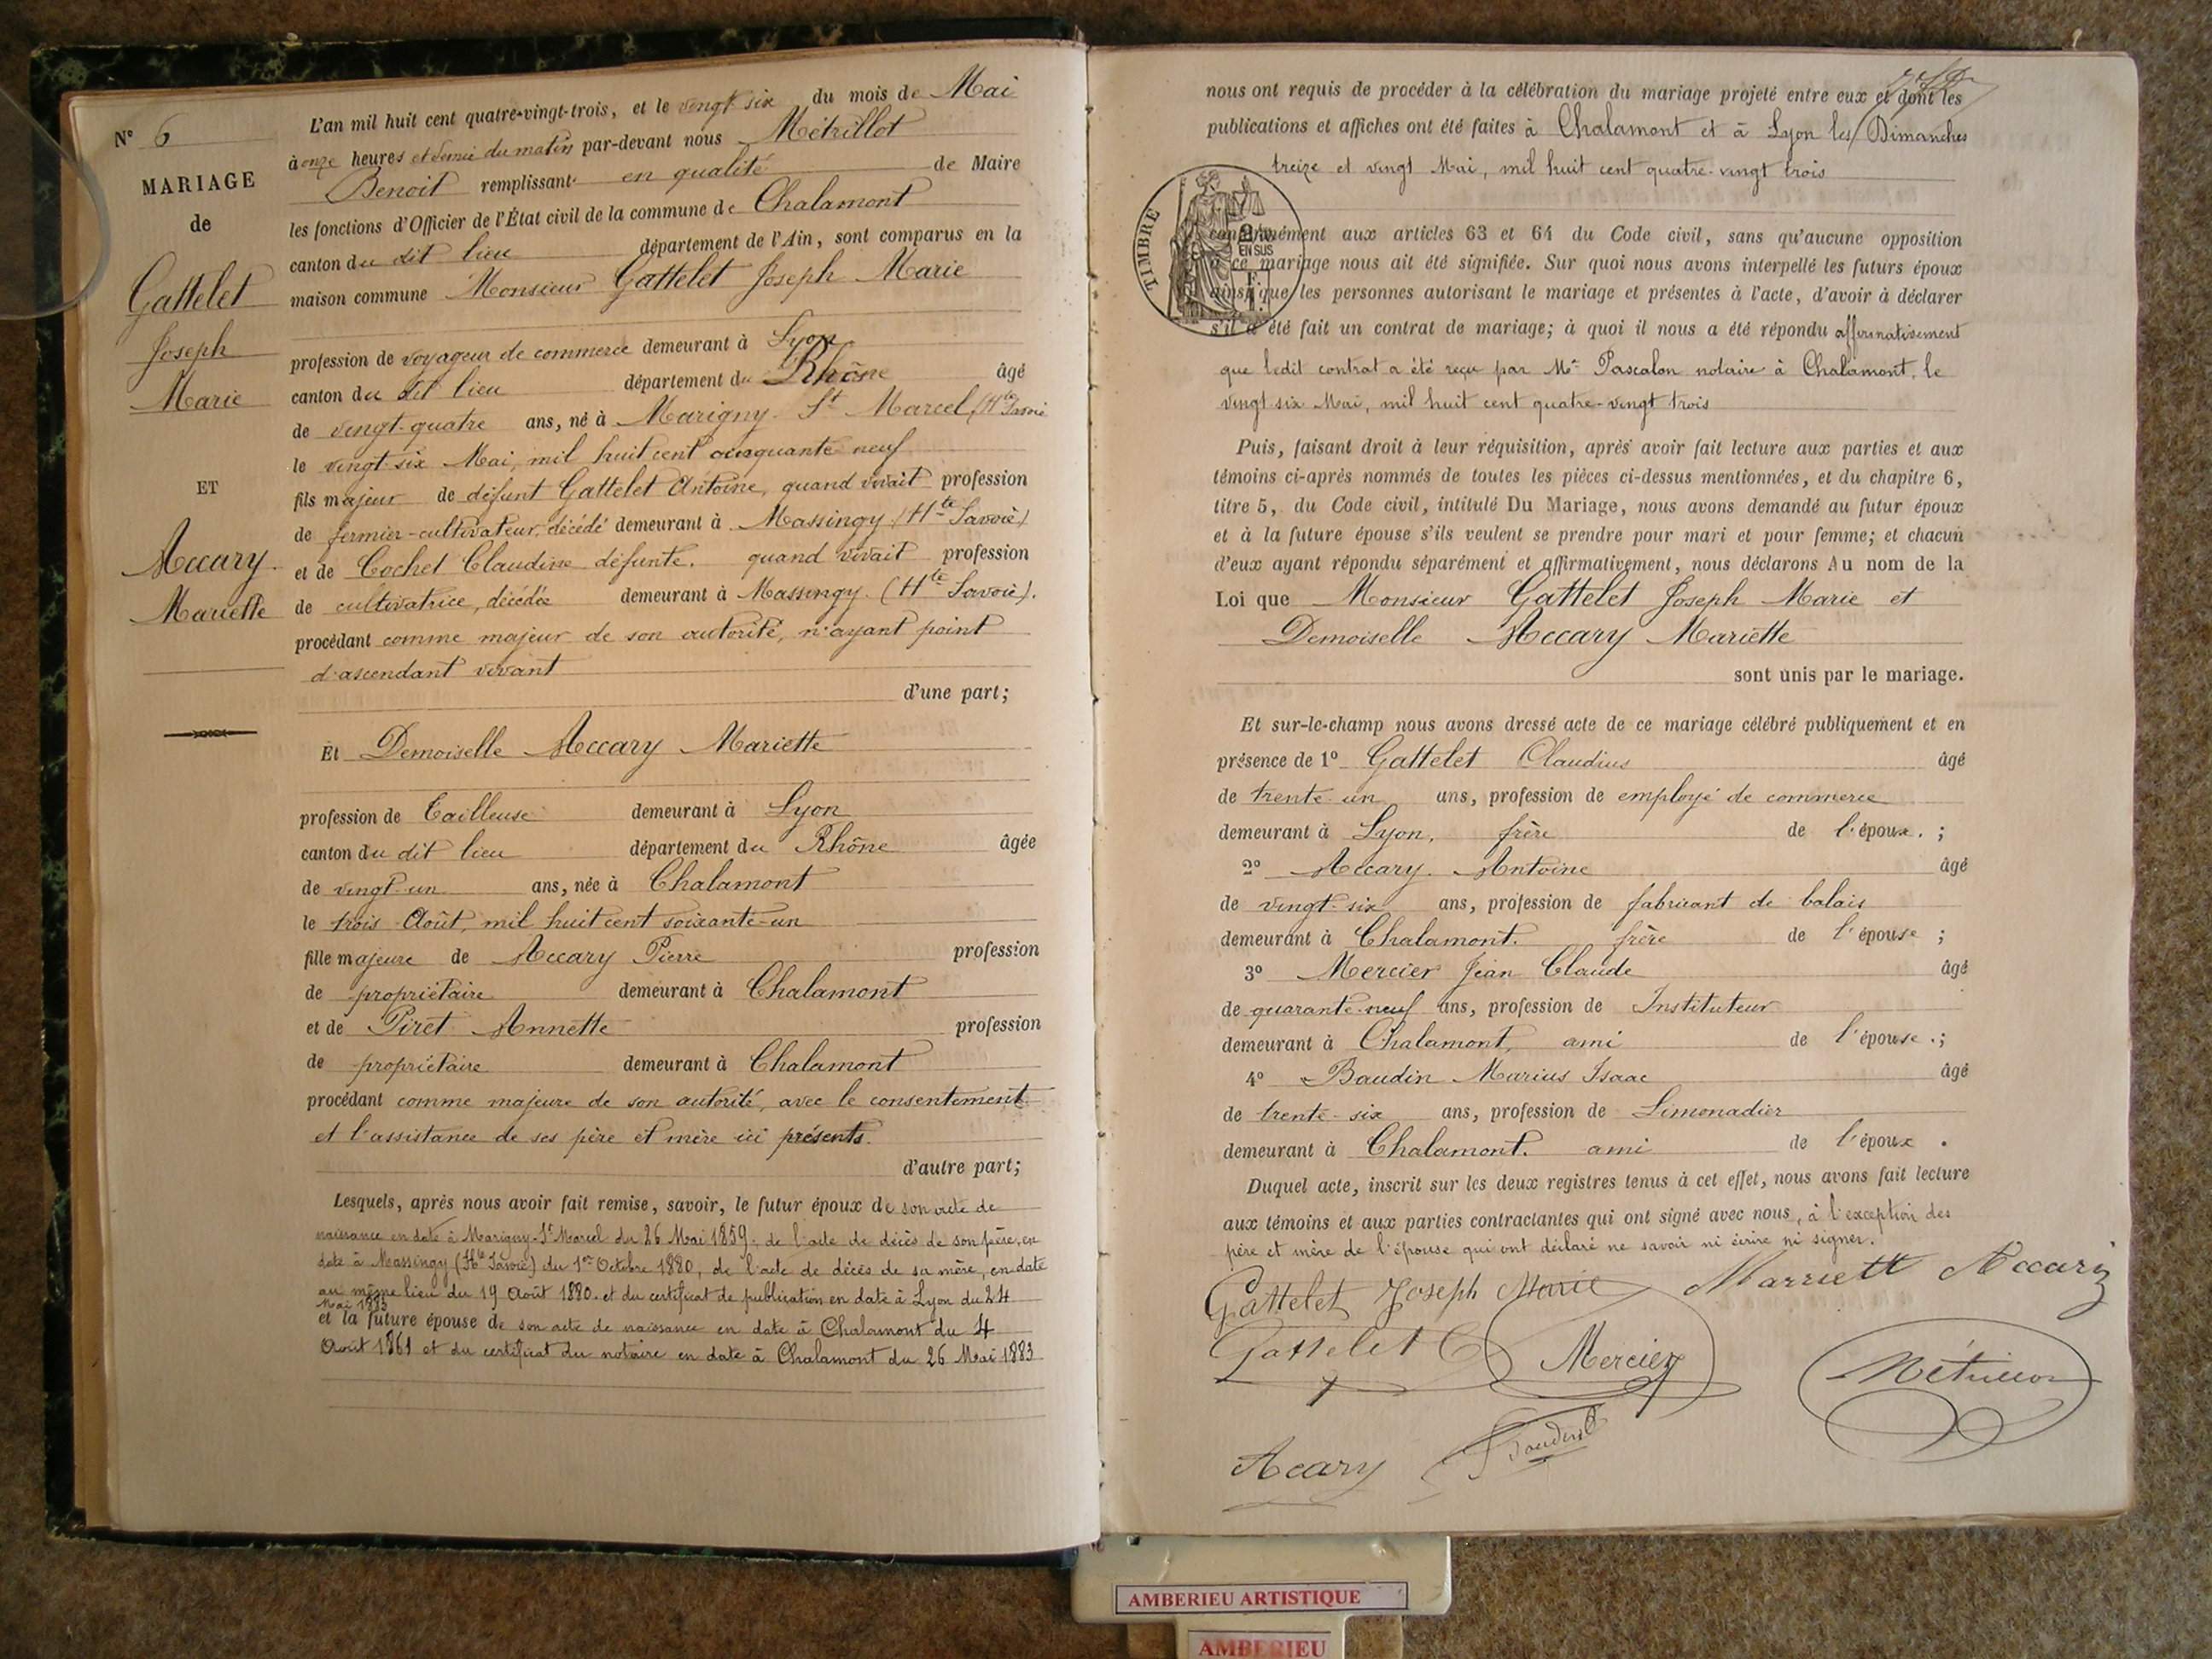 N° 6
MARIAGE
de
Gattelet
Joseph
Marie
ET
Accary
Mariette
L'an mil huit cent quatre-vingt-trois, et le vingt six du mois de Mai
à onze heures et demie du matin par-devant nous Métrillot
Benoit remplissant en qualité de Maire
les fonctions d'Officier de l'État civil de la commune de Chalamont
canton du dit lieu département de l'Ain, sont comparus en la
maison commune Monsieur Gattelet Joseph Marie
profession de voyageur de commerce demeurant à Lyon
canton du dit lieu département du Rhône âgé
de vingt-quatre ans, né à Marigny-St Marcel (Hte Savoie
le vingt-six Mai, mil huit cent cinquante neuf
fils majeur de défunt Gattelet Antoine, quand vivait profession
de fermier-cultivateur, décédé demeurant à Massingy (Hte Savoie)
et de Cochet Claudine défunte, quand vivait profession
de cultivatrice, décédée demeurant à Massingy. (Hte Savoie).
procédant comme majeur de son autorité, n'ayant point
d'ascendant vivant
d'une part;
Et Demoiselle Accary Mariette
profession de Tailleuse demeurant à Lyon
canton du dit lieu département du Rhône âgée
de vingt-un ans, née à Chalamont
le trois Août, mil huit cent soixante-un
fille majeure de Accary Pierre profession
de propriétaire demeurant à Chalamont
et de Piret Annette profession
de propriétaire demeurant à Chalamont
procédant comme majeure de son autorité, avec le consentement
et l'assistance de ses père et mère ici présents.
d'autre part;
Lesquels, après nous avoir fait remise, savoir, le futur époux de son acte de
naissance en date à Marigny-St Marcel du 26 Mai 1859, de l'acte de décès de son père, en
date à Massingy (Hte Savoie) du 1er Octobre 1880, de l'acte de décès de sa mère, en date
au même lieu du 19 Août 1880. et du certificat de publication en date à Lyon du 24
Mai 1883
et la future épouse de son acte de naissance en date à Chalamont du 4
Août 1861 et du certificat du notaire en date à Chalamont du 26 Mai 1883
nous ont requis de procéder à la célébration du mariage projeté entre eux et dont les
publications et affiches ont été faites à Chalamont et à Lyon les Dimanches
treize et vingt Mai, mil huit cent quatre-vingt trois
TIMBRE
EN SUS
conformément aux articles 63 et 64 du Code civil, sans qu'aucune opposition
à ce mariage nous ait été signifiée. Sur quoi nous avons interpellé les futurs époux
ainsi que les personnes autorisant le mariage et présentes à l'acte, d'avoir à déclarer
s'il a été fait un contrat de mariage; à quoi il nous a été répondu affirmativement
que ledit contrat a été reçu par Me Pascalon notaire à Chalamont, le
vingt-six Mai, mil huit cent quatre-vingt trois
Puis, faisant droit à leur réquisition, après avoir fait lecture aux parties et aux
témoins ci-après nommés de toutes les pièces ci-dessus mentionnées, et du chapitre 6,
titre 5, du Code civil, intitulé Du Mariage, nous avons demandé au futur époux
et à la future épouse s'ils veulent se prendre pour mari et pour femme; et chacun
d'eux ayant répondu séparément et affirmativement, nous déclarons Au nom de la
Loi que Monsieur Gattelet Joseph Marie et
Demoiselle Accary Mariette
sont unis par le mariage.
Et sur-le-champ nous avons dressé acte de ce mariage célébré publiquement et en
présence de 1° Gattelet Claudius âgé
de trente-un ans, profession de employé de commerce
demeurant à Lyon, frère de l'époux. ;
2° Accary. Antoine âgé
de vingt-six ans, profession de fabricant de balais
demeurant à Chalamont. frère de l'épouse ;
3° Mercier Jean Claude âgé
de quarante-neuf ans, profession de Instituteur
demeurant à Chalamont, ami de l'épouse . ;
4° Baudin Marius Isaac âgé
de trente-six ans, profession de Limonadier
demeurant à Chalamont. ami de l'époux .
Duquel acte, inscrit sur les deux registres tenus à cet effet, nous avons fait lecture
aux témoins et aux parties contractantes qui ont signé avec nous, à l'exception des
père et mère de l'épouse qui ont déclaré ne savoir ni écrire ni signer.
Gattelet Joseph Marie Marriett Accary
Gattelet C Mercier Métrillot
Acary Baudin
AMBERIEU ARTISTIQUE
AMBERIEU